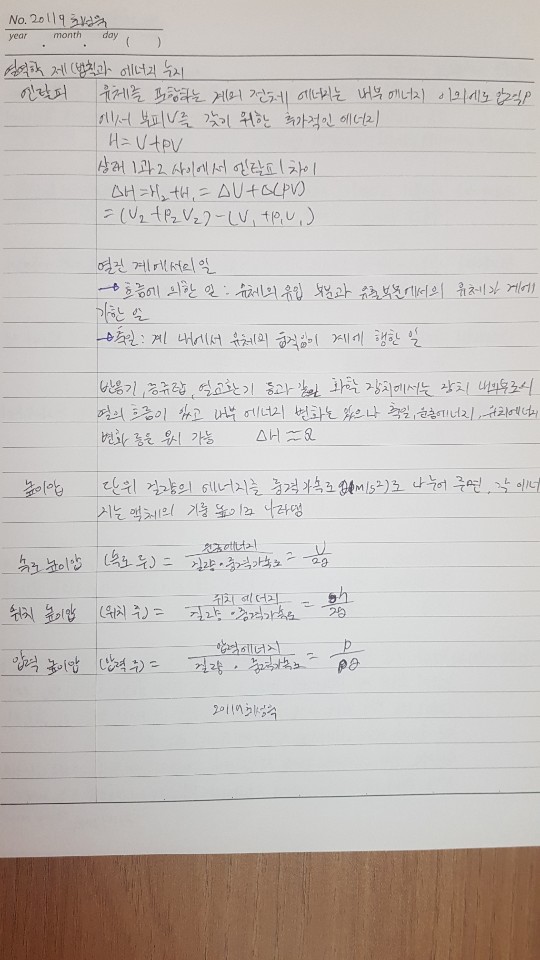 No. 20119 최성욱
year . month . day ( )
열역학 제1법칙과 에너지 수지
엔탈피 유체를 포함하는 계의 전체 에너지는 내부 에너지 이외에도 압력P
에서 부피V를 갖기 위한 추가적인 에너지
H = U + PV
상태 1과 2 사이에서 엔탈피 차이
ΔH = H₂ + H₁ = ΔU + Δ(PV)
= (U₂ + P₂V₂) - (U₁ + P₁V₁)
열린 계에서의 일
→ 흐름에 의한 일 : 유체의 유입 부분과 유출부분에서의 유체가 계에
가한 일
→ 축일 : 계 내에서 유체의 움직임이 계에 행한 일
반응기, 증류탑, 열교환기 등과 같은 화학 장치에서는 장치 내외부로서
열의 흐름이 있고 내부 에너지 변화는 있으나 축일, 운동에너지, 위치에너지
변화 등은 무시 가능 ΔH ≈ Q
높이압 단위 질량의 에너지를 중력가속도 (m/s²)로 나누어 주면, 각 에너
지는 액체의 기둥 높이로 나타냄
속도 높이압 (속도 두) = 운동에너지 / 질량·중력가속도 = U / 2g
위치 높이압 (위치 두) = 위치 에너지 / 질량·중력가속도 = h / 2g
압력 높이압 (압력 두) = 압력에너지 / 질량·중력가속도 = P / ρg
20119 최성욱